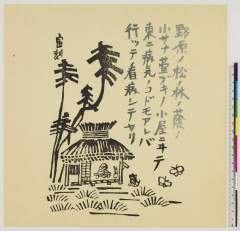 野原ノ松ノ林ノ蔭ノ
小サナ萱ブキノ小屋ニヰテ
東ニ病気ノコドモアレバ
行ッテ看病シテヤリ